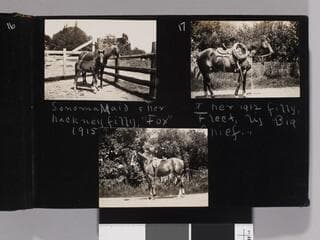 16
17
Sonoma Maid & her
hackney filly, "Fox"
1915
& her 1912 filly,
Fleet, by Big
Chief...